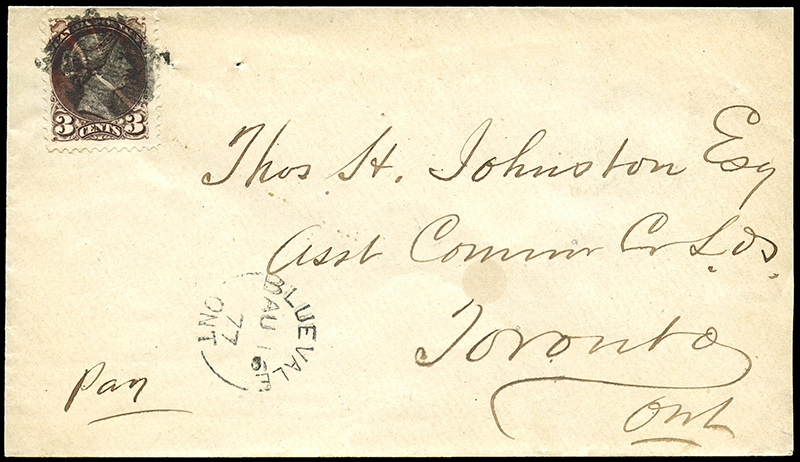 3 CENTS 3
Thos H. Johnston Esq
Asst Commr Cr Lds.
Toronto
Ont
BLUEVALE
AU 16
77
ONT
Pay